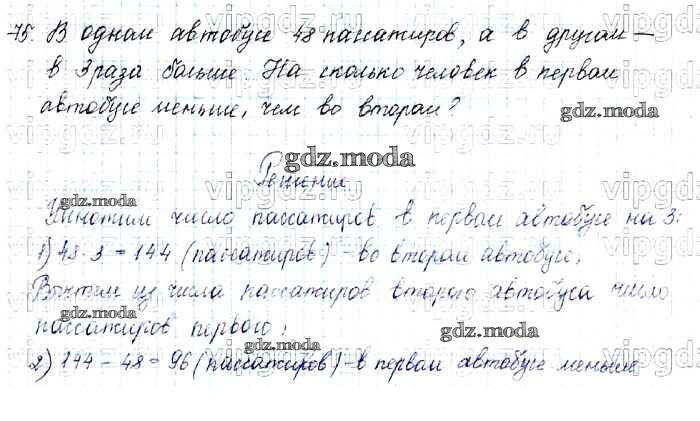 75. В одном автобусе 48 пассажиров, а в другом —
в 3 раза больше. На сколько человек в первом
автобусе меньше, чем во втором?
gdz.moda
gdz.moda
Решение
gdz.moda
Умножим число пассажиров в первом автобусе на 3:
1) 48·3=144 (пассажиров) - во втором автобусе;
gdz.moda
Вычтем из числа пассажиров второго автобуса число
пассажиров первого:
gdz.moda
2) 144-48=96 (пассажиров) - в первом автобусе меньше
gdz.moda